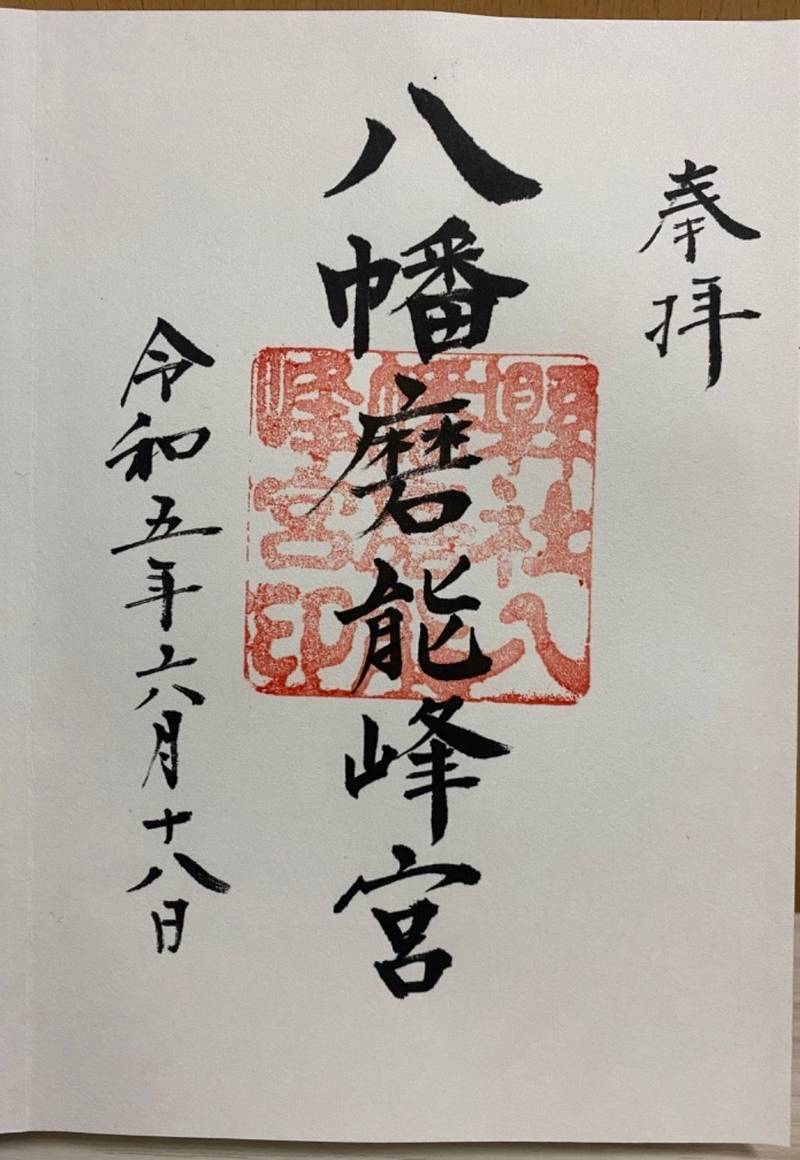 奉拝
八幡磨能峰宮
縣社八
幡磨能
峰宮印
令和五年六月十八日